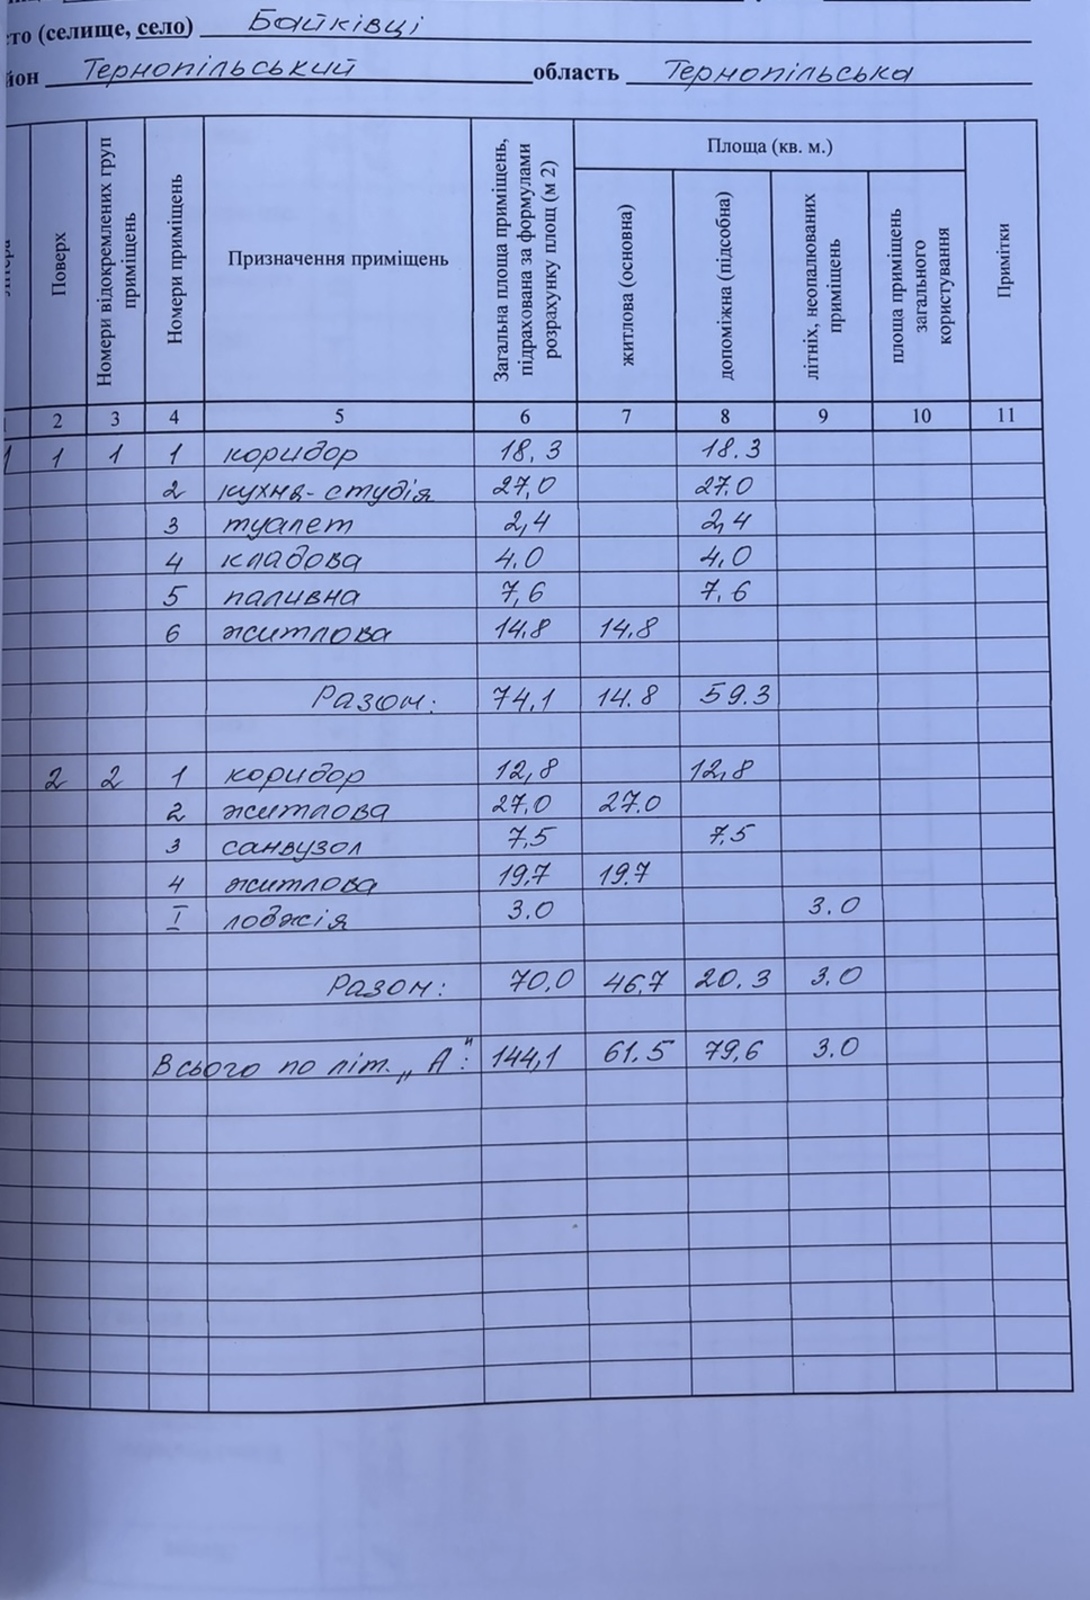 то (селище, село) Байківці
йон Тернопільський область Тернопільська
Поверх
Номери відокремлених груп приміщень
Номери приміщень
Призначення приміщень
Загальна площа приміщень, підрахована за формулами розрахунку площ (м 2)
Площа (кв. м.)
житлова (основна)
допоміжна (підсобна)
літніх, неопалюваних приміщень
площа приміщень загального користування
Примітки
2 3 4 5 6 7 8 9 10 11
1 1 1 коридор 18.3 18.3
2 кухня-студія 27,0 27.0
3 туалет 2,4 2,4
4 кладова 4.0 4,0
5 паливна 7,6 7.6
6 житлова 14.8 14.8
Разом: 74,1 14.8 59.3
2 2 1 коридор 12,8 12,8
2 житлова 27.0 27.0
3 санвузол 7,5 7,5
4 житлова 19,7 19.7
I лоджія 3.0 3.0
Разом: 70,0 46,7 20.3 3.0
Всього по літ. „А": 144,1 61.5 79,6 3.0